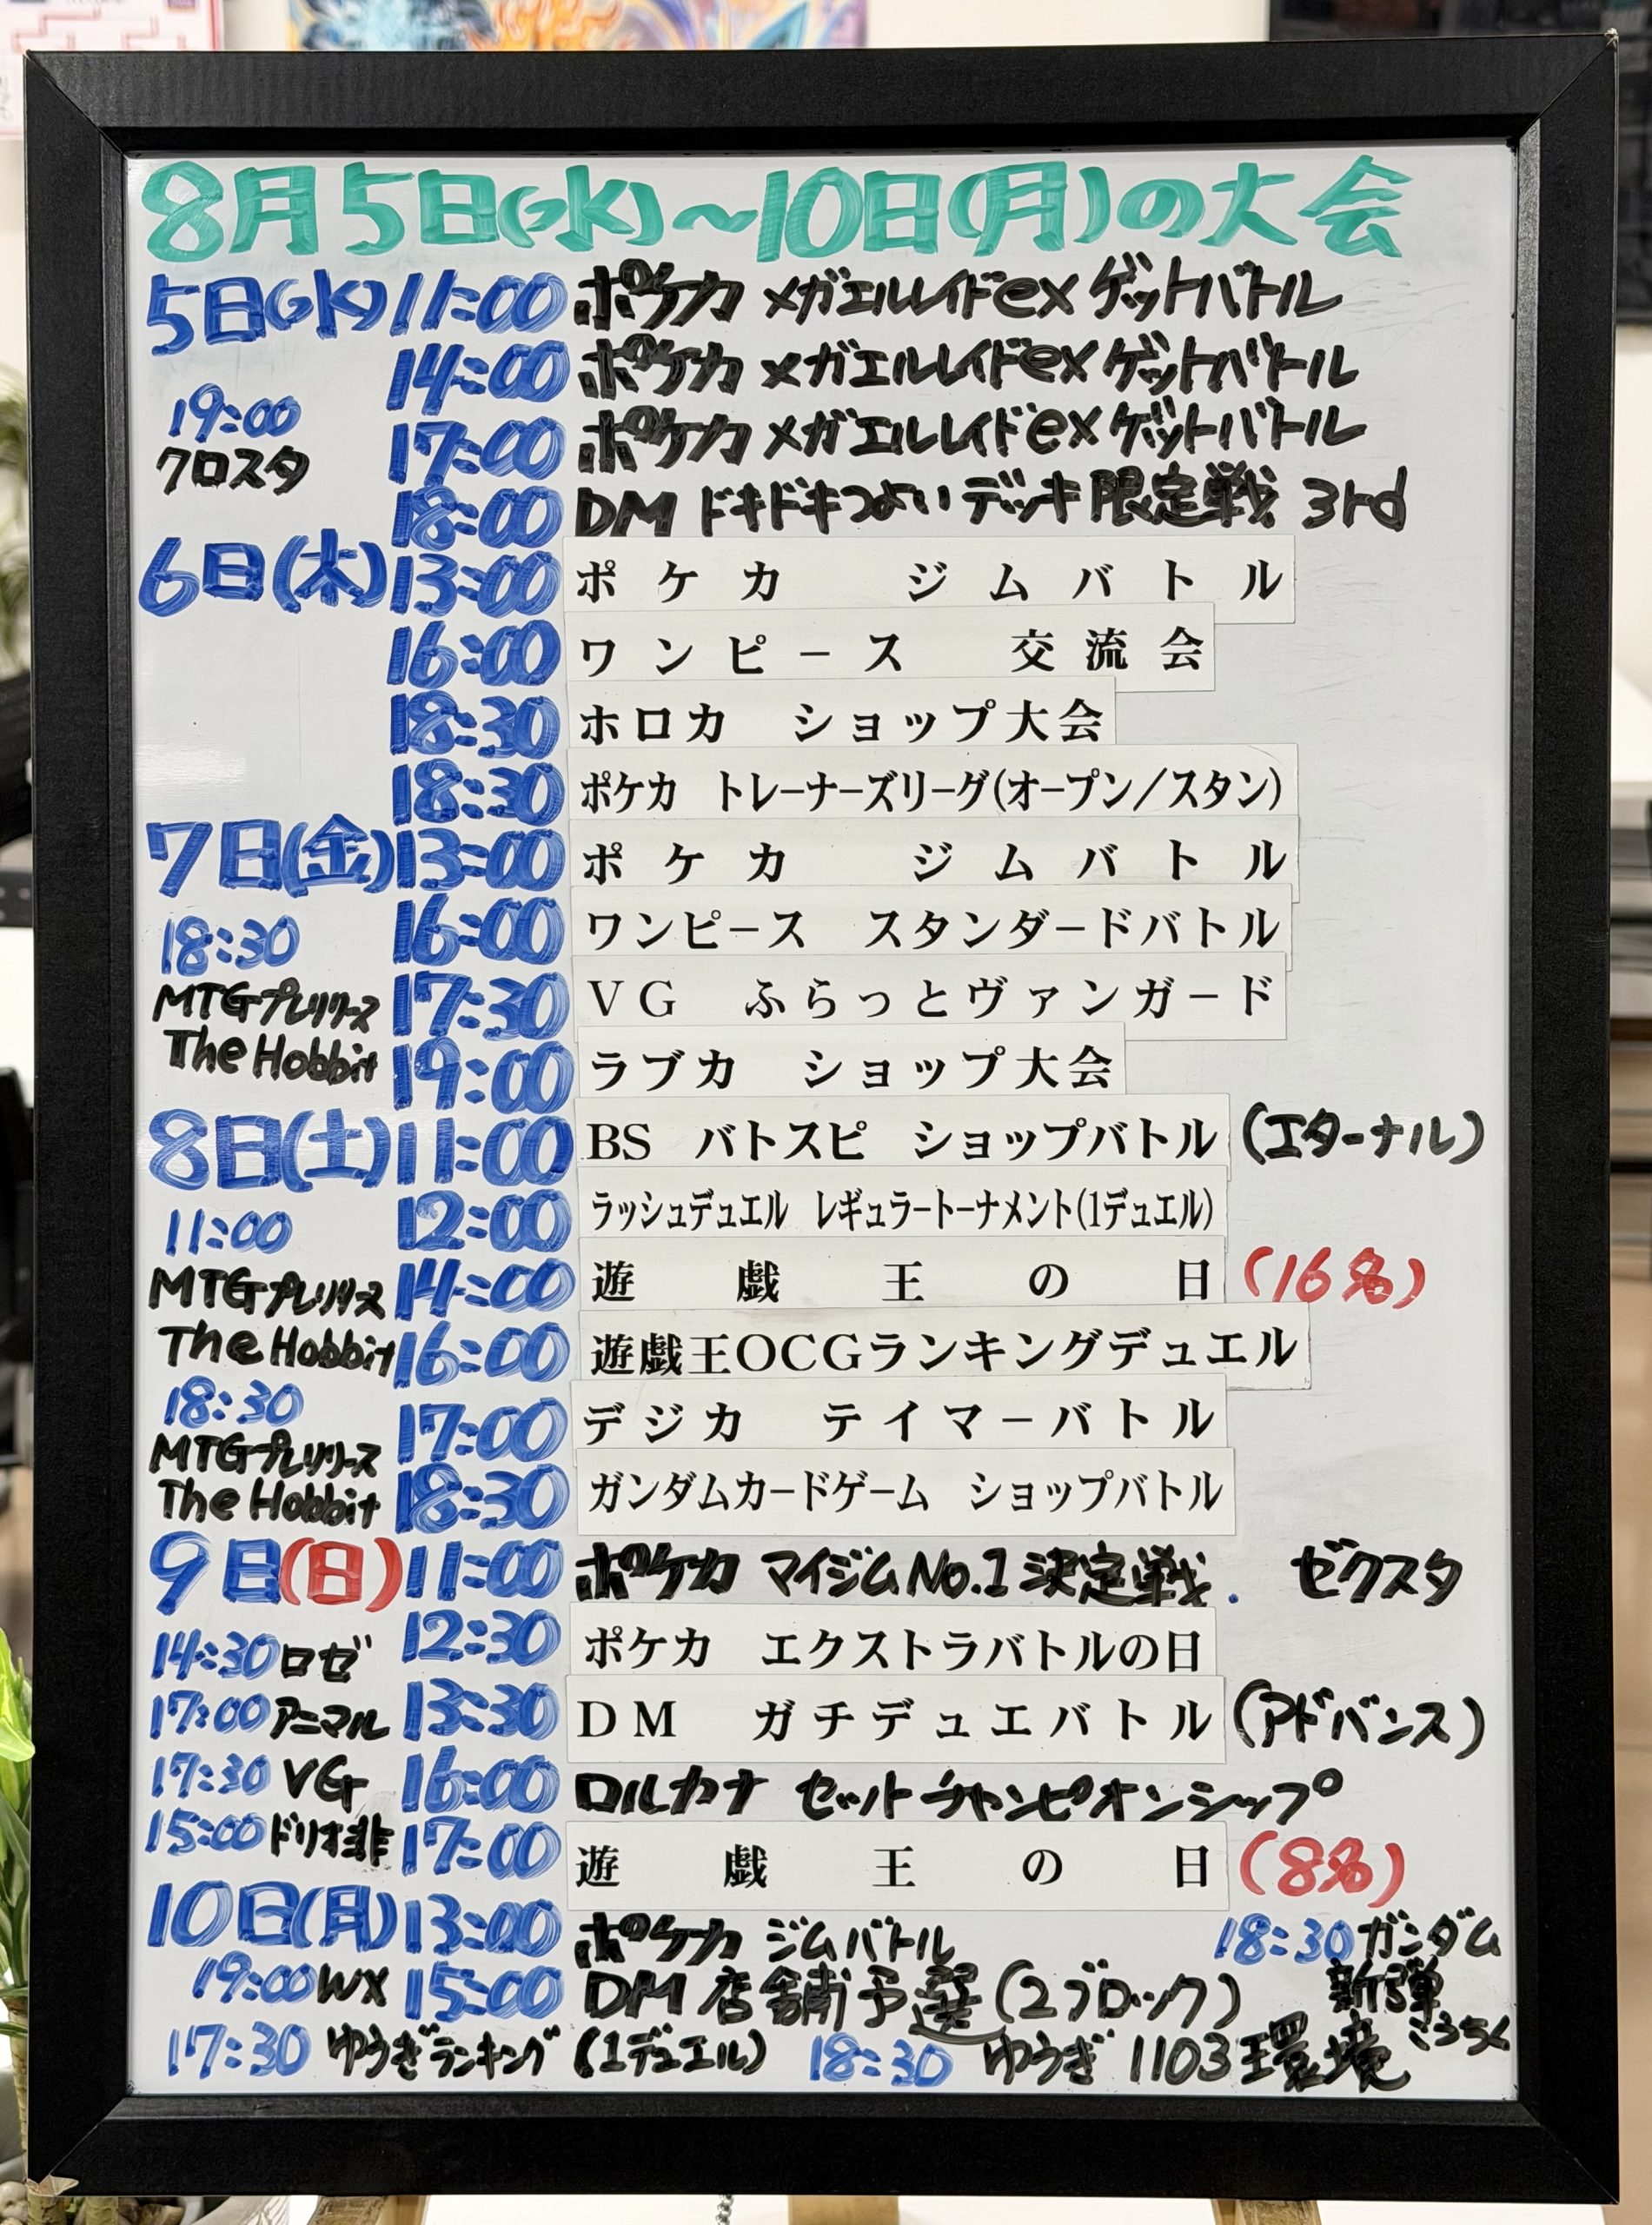 8月5日(水)～10日(月)の大会
5日(水) 11:00 ポケカ メガエルレイドex ゲットバトル
14:00 ポケカ メガエルレイドex ゲットバトル
19:00
クロスタ
17:00 ポケカ メガエルレイドex ゲットバトル
18:00 DM ドキドキつよいデッキ限定戦 3rd
6日(木) 13:00 ポケカ ジムバトル
16:00 ワンピース 交流会
18:30 ホロカ ショップ大会
18:30 ポケカ トレーナーズリーグ(オープン/スタン)
7日(金) 13:00 ポケカ ジムバトル
18:30
MTGプレリリース
The Hobbit
16:00 ワンピース スタンダードバトル
17:30 VG ふらっとヴァンガード
19:00 ラブカ ショップ大会
8日(土) 11:00 BS バトスピ ショップバトル (エターナル)
11:00
MTGプレリリース
The Hobbit
18:30
MTGプレリリース
The Hobbit
12:00 ラッシュデュエル レギュラートーナメント(1デュエル)
14:00 遊戯王の日 (16名)
16:00 遊戯王OCGランキングデュエル
17:00 デジカ テイマーバトル
18:30 ガンダムカードゲーム ショップバトル
9日(日) 11:00 ポケカ マイジムNo.1決定戦. ゼクスタ
14:30 ロゼ
17:00 アニマル
17:30 VG
15:00 ドリオ非
12:30 ポケカ エクストラバトルの日
13:30 DM ガチデュエバトル (アドバンス)
16:00 ロルカナ セットチャンピオンシップ
17:00 遊戯王の日 (8名)
10日(月) 13:00 ポケカ ジムバトル
18:30 ガンダム
新弾
こうちく
19:00 WX
15:00 DM 店舗予選(2ブロック)
17:30 ゆうぎランキング(1デュエル) 18:30 ゆうぎ 1103環境